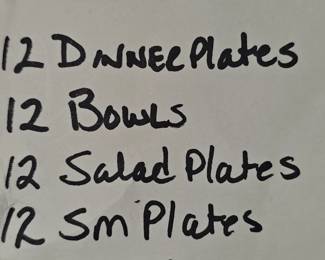 12 Dinner Plates
12 Bowls
12 Salad Plates
12 Sm Plates